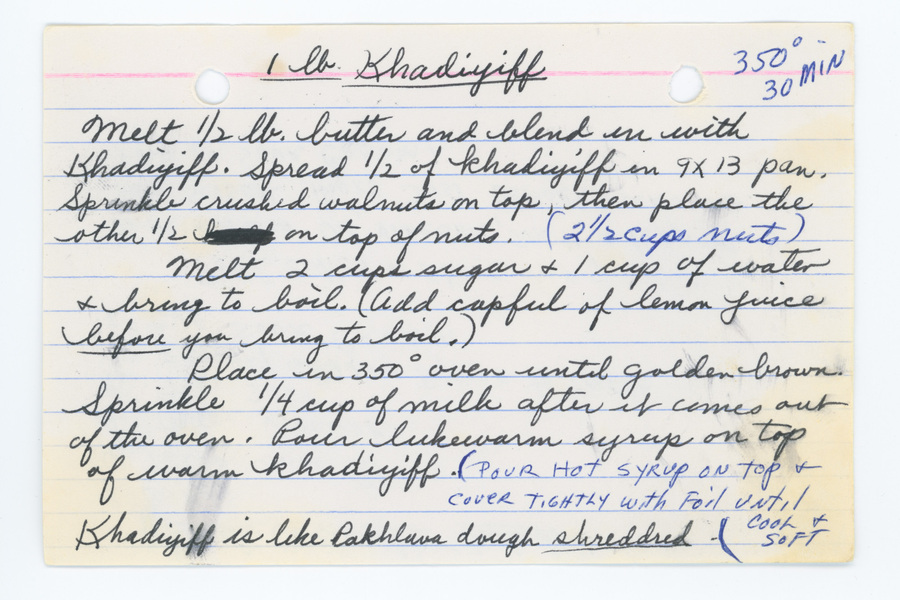 1 lb. Khadiyiff
350°
30 MIN
Melt 1/2 lb. butter and blend in with
Khadiyiff. Spread 1/2 of khadiyiff in 9X13 pan.
Sprinkle crushed walnuts on top, then place the
other 1/2 on top of nuts. (2 1/2 cups nuts)
Melt 2 cups sugar & 1 cup of water
& bring to boil. (Add capful of lemon juice
before you bring to boil.)
Place in 350° oven until golden brown.
Sprinkle 1/4 cup of milk after it comes out
of the oven. Pour lukewarm syrup on top
of warm khadiyiff. (POUR HOT SYRUP ON TOP &
COVER TIGHTLY WITH FOIL UNTIL
COOL &
SOFT
Khadiyiff is like Pakhlava dough shreddred